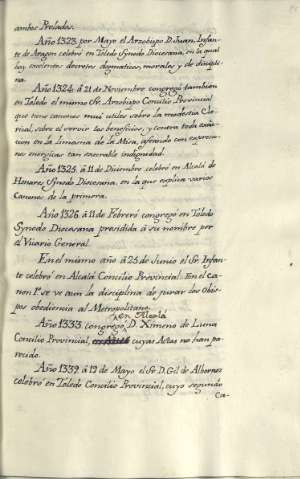 ambos Prelados.
Año 1323 por Mayo el Arzobispo D. Juan, Infan-
te de Aragon celebró en Toledo Synodo Diocesana, en la qual
hay excelentes decretos dogmaticos, morales y de discipli-
na.
Año 1324 á 21 de Noviembre congregó tambien
en Toledo el mismo Sr. Arzobispo Concilio Provincial
que tiene canones mui utiles sobre la modestia Cle-
rical, sobre el servir los beneficios, y contra toda exac-
cion en la limosna de la Misa, afeando con expresio-
nes energicas tan execrable indignidad.
Año 1325 á 11 de Diciembre celebró en Alcalá de
Henares Synodo Diocesana, en la que explica varios
Canones de la primera.
Año 1326 á 11 de Febrero congregó en Toledo
Synodo Diocesana presidida á su nombre por
el Vicario General.
En el mismo año á 25 de Junio el Sr. Infan-
te celebró en Alcalá Concilio Provincial. En el ca-
non 1º se ve aun la disciplina de jurar los Obis-
pos obediencia al Metropolitano.
en Alcalá
Año 1333 congregó D. Ximeno de Luna
Concilio Provincial, cuyas Actas no han pa-
recido.
Año 1339 á 19 de Mayo el Sr. D. Gil de Albornoz
celebró en Toledo Concilio Provincial, cuyo segundo
Ca-